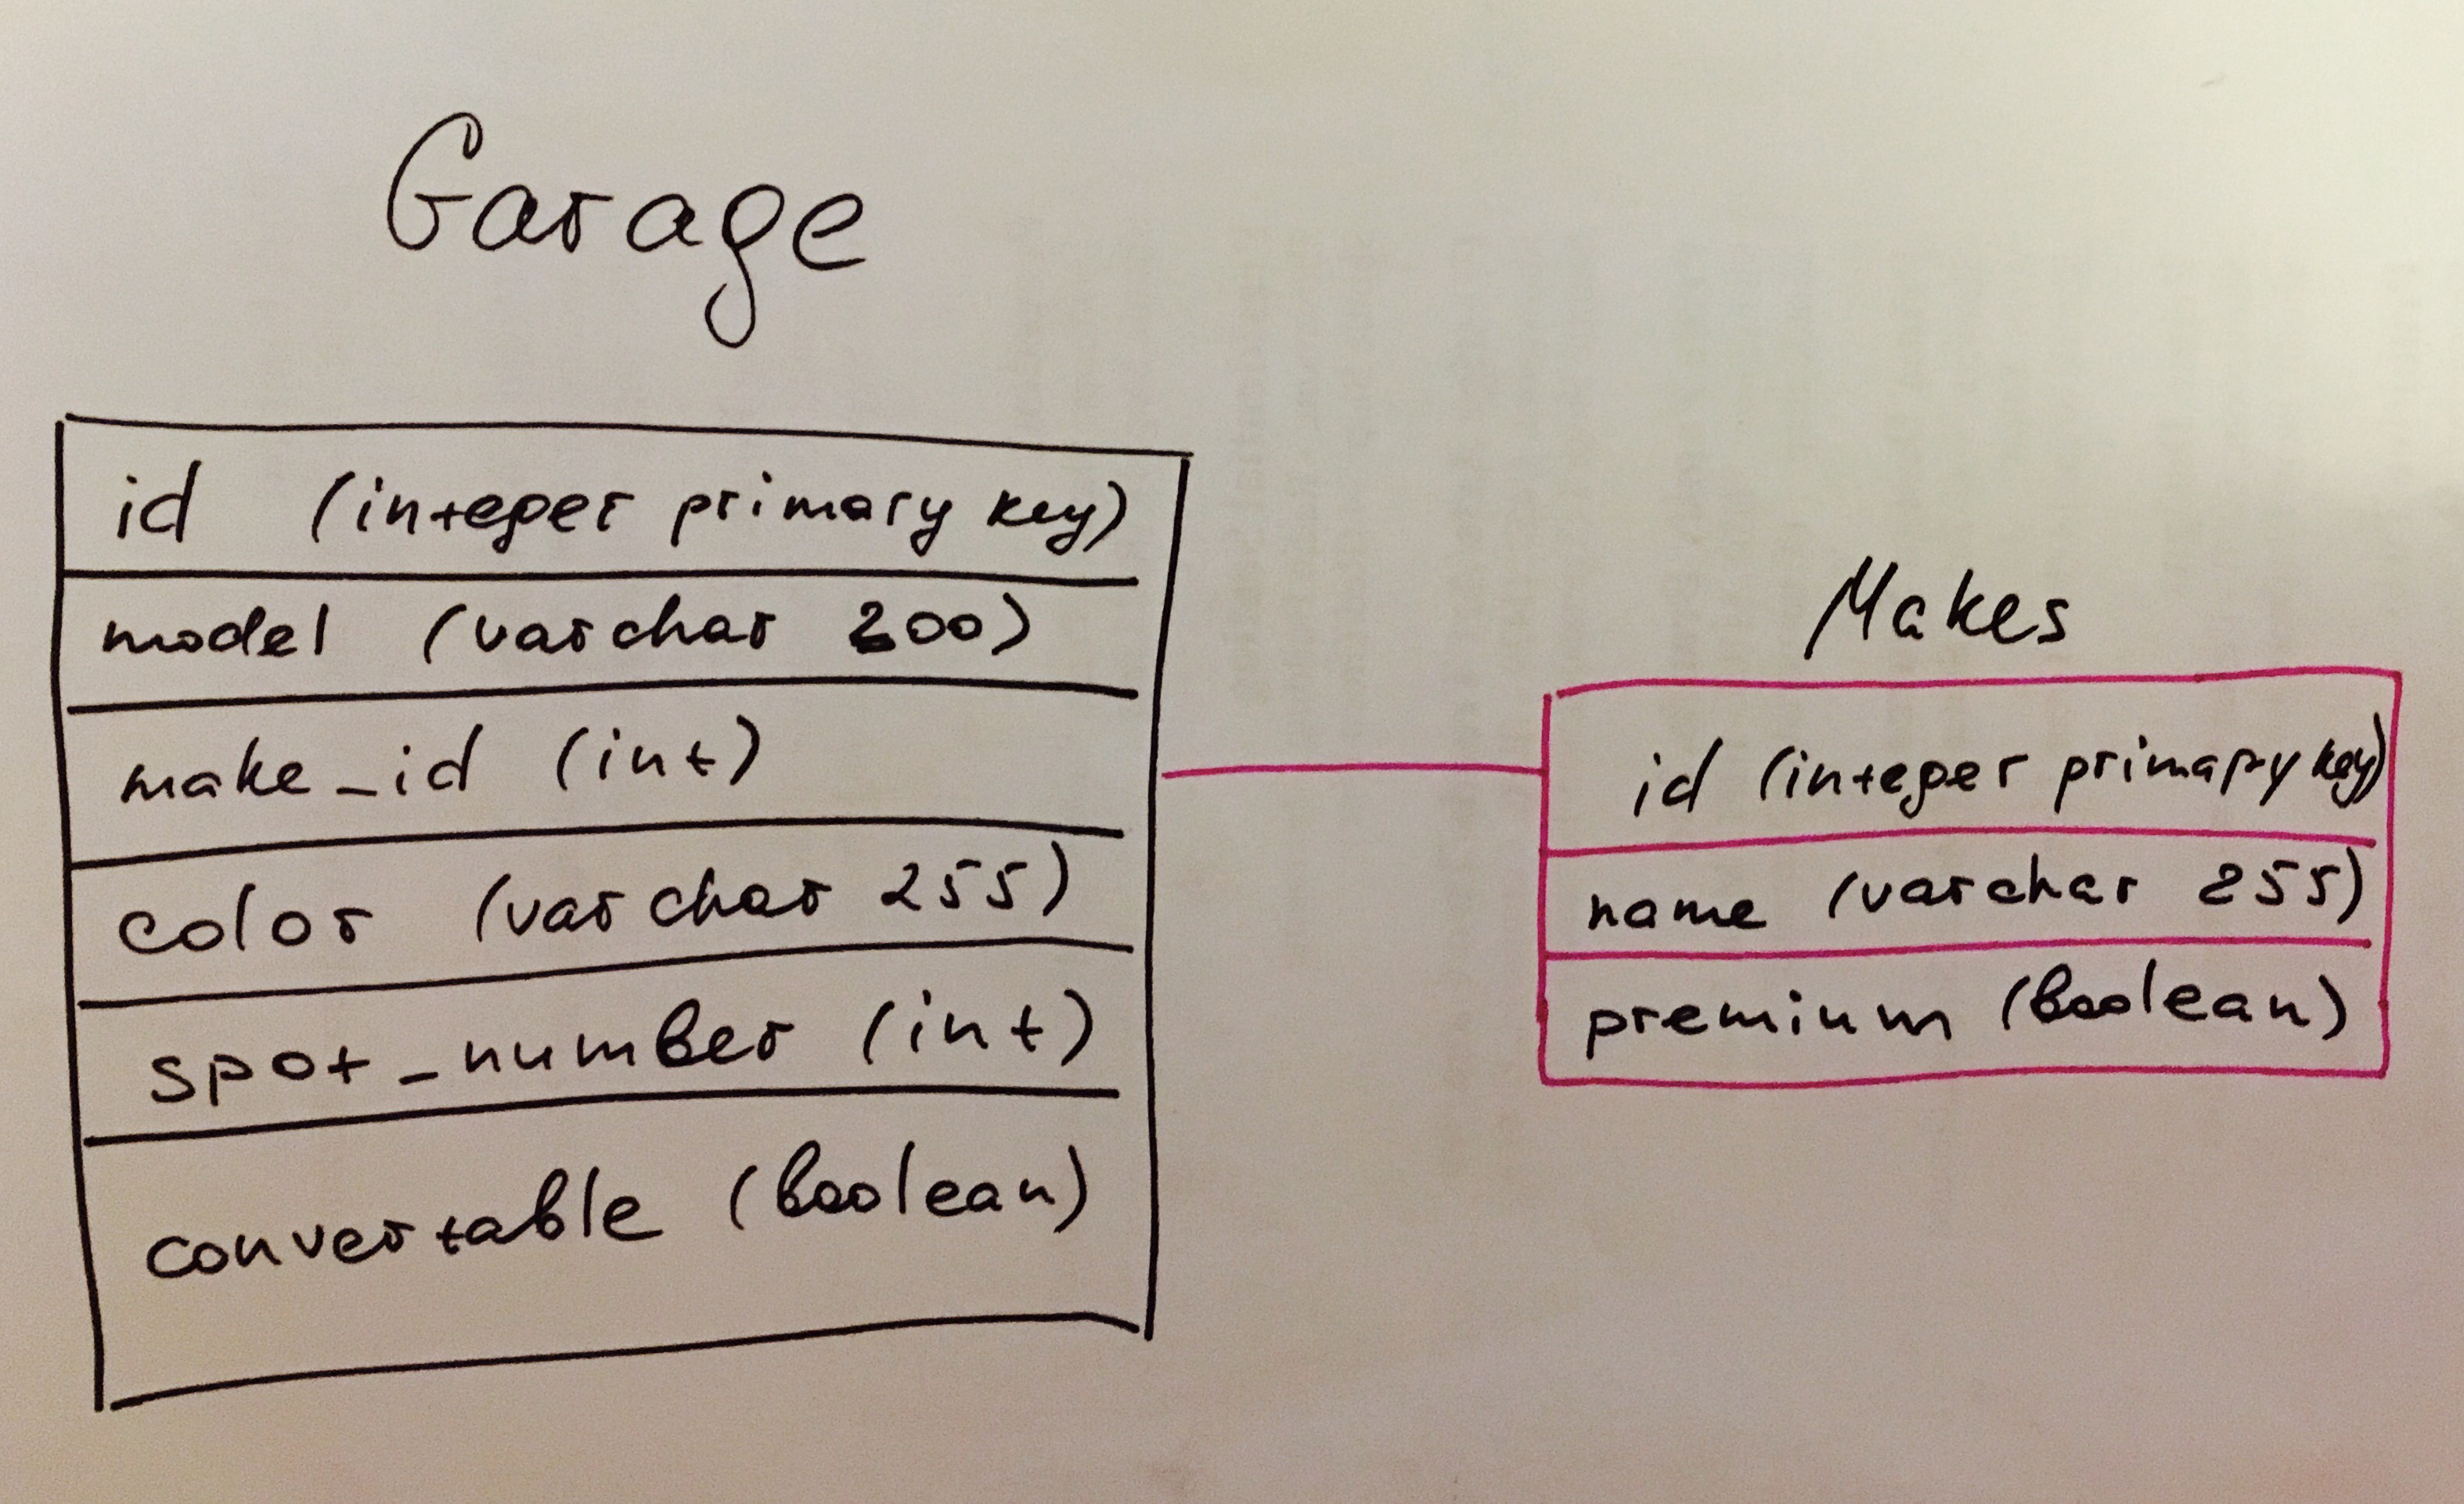 Garage
id (integer primary key)
model (varchar 200)
make_id (int)
color (varchar 255)
spot_number (int)
convertable (boolean)
Makes
id (integer primapy key)
name (varchar 255)
premium (boolean)